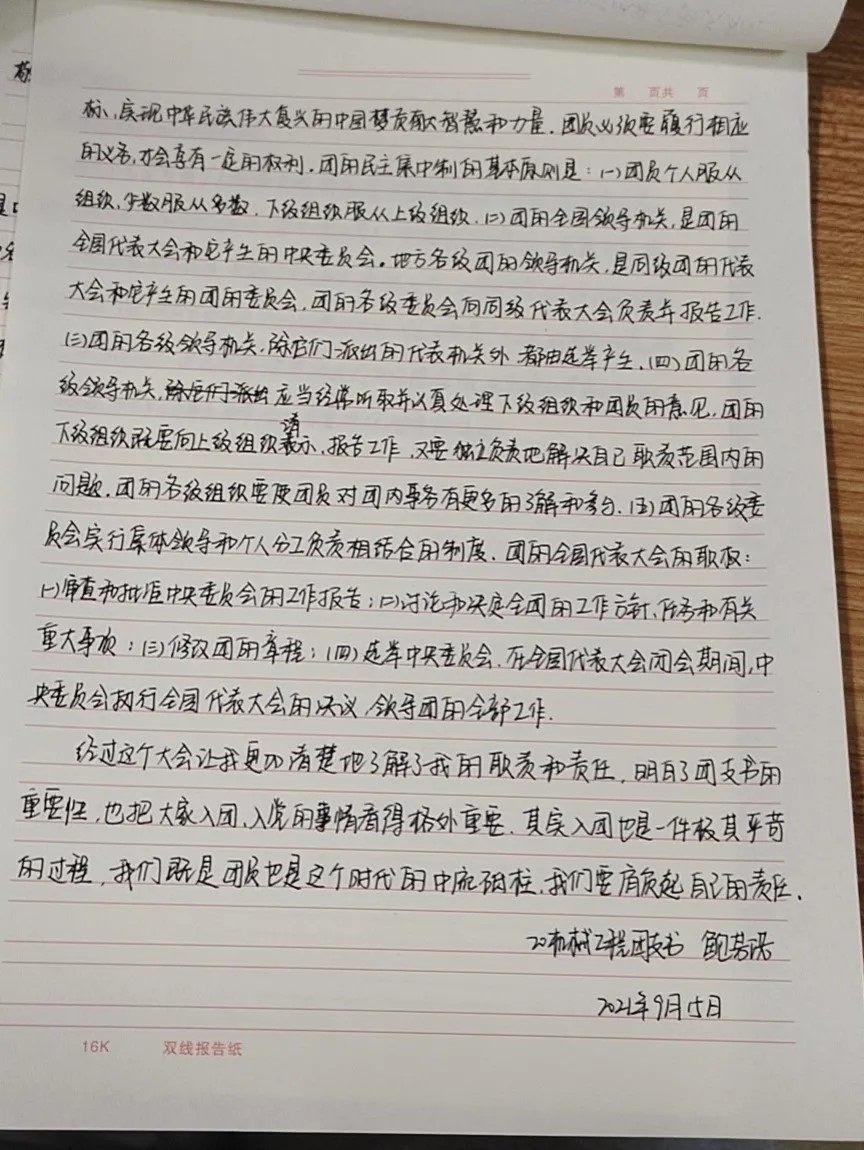 第 页共 页
标、实现中华民族伟大复兴的中国梦贡献大智慧和力量。团员必须要履行相应
的义务，才会享有一定的权利。团的民主集中制的基本原则是：(一)团员个人服从
组织，少数服从多数，下级组织服从上级组织。(二)团的全国领导机关，是团的
全国代表大会和它产生的中央委员会。地方各级团的领导机关，是同级团的代表
大会和它产生的团的委员会，团的各级委员会向同级代表大会负责并报告工作。
(三)团的各级领导机关，除它们派出的代表机关外，都由选举产生。(四)团的各
级领导机关，除它们派出应当经常听取并认真处理下级组织和团员的意见，团的
下级组织既要向上级组织请示，报告工作，又要独立负责地解决自己职责范围内的
问题。团的各级组织要使团员对团内事务有更多的了解和参与。(五)团的各级委
员会实行集体领导和个人分工负责相结合的制度。团的全国代表大会的职权：
(一)审查和批准中央委员会的工作报告；(二)讨论和决定全团的工作方针、任务和有关
重大事项；(三)修改团的章程；(四)选举中央委员会。在全国代表大会闭会期间，中
央委员会执行全国代表大会的决议，领导团的全部工作。
经过这个大会让我更加清楚地了解了我的职责和责任，明白了团支书的
重要性，也把大家入团、入党的事情看得格外重要。其实入团也是一件极其严苛
的过程，我们既是团员也是这个时代的中流砥柱，我们要肩负起自己的责任。
20机械工程团支书 鲍
2021年9月15日
16K 双线报告纸